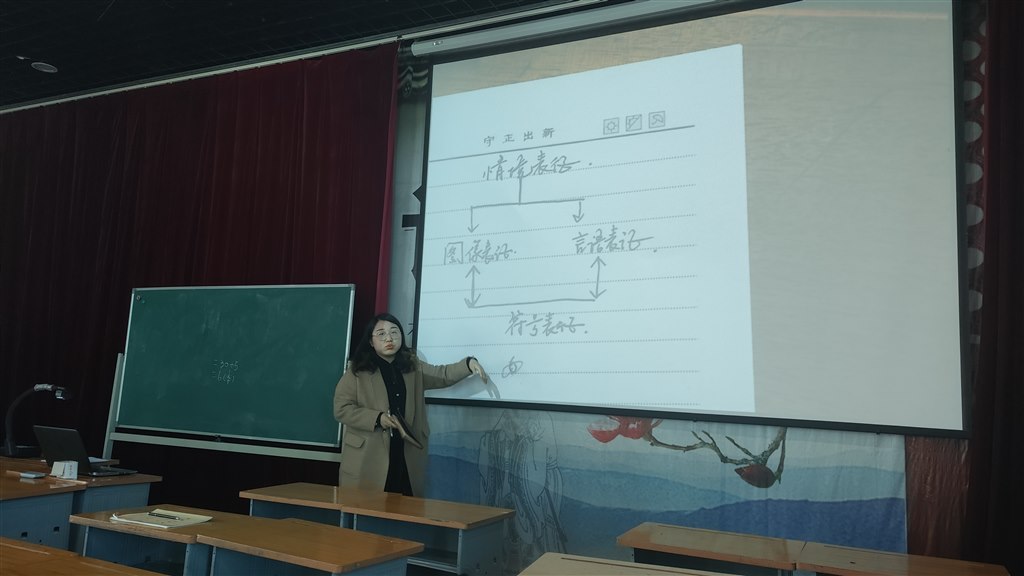 守正出新
情境表征.
图像表征. 言语表征.
符号表征.
=30÷5
=6(个)